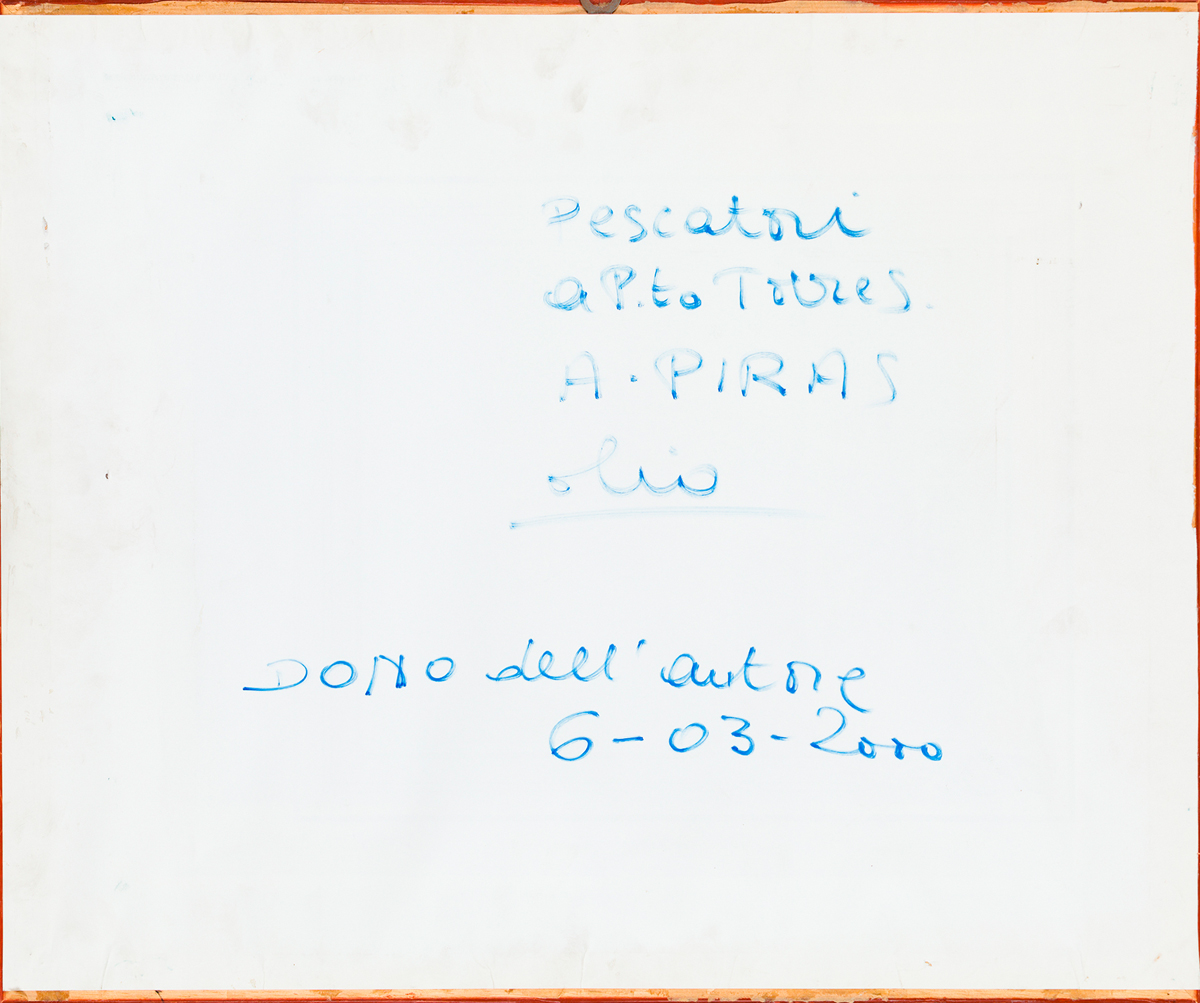 Pescatori
a P.to Torres.
A. PIRAS
olio
DONO dell'autore
6-03-2000